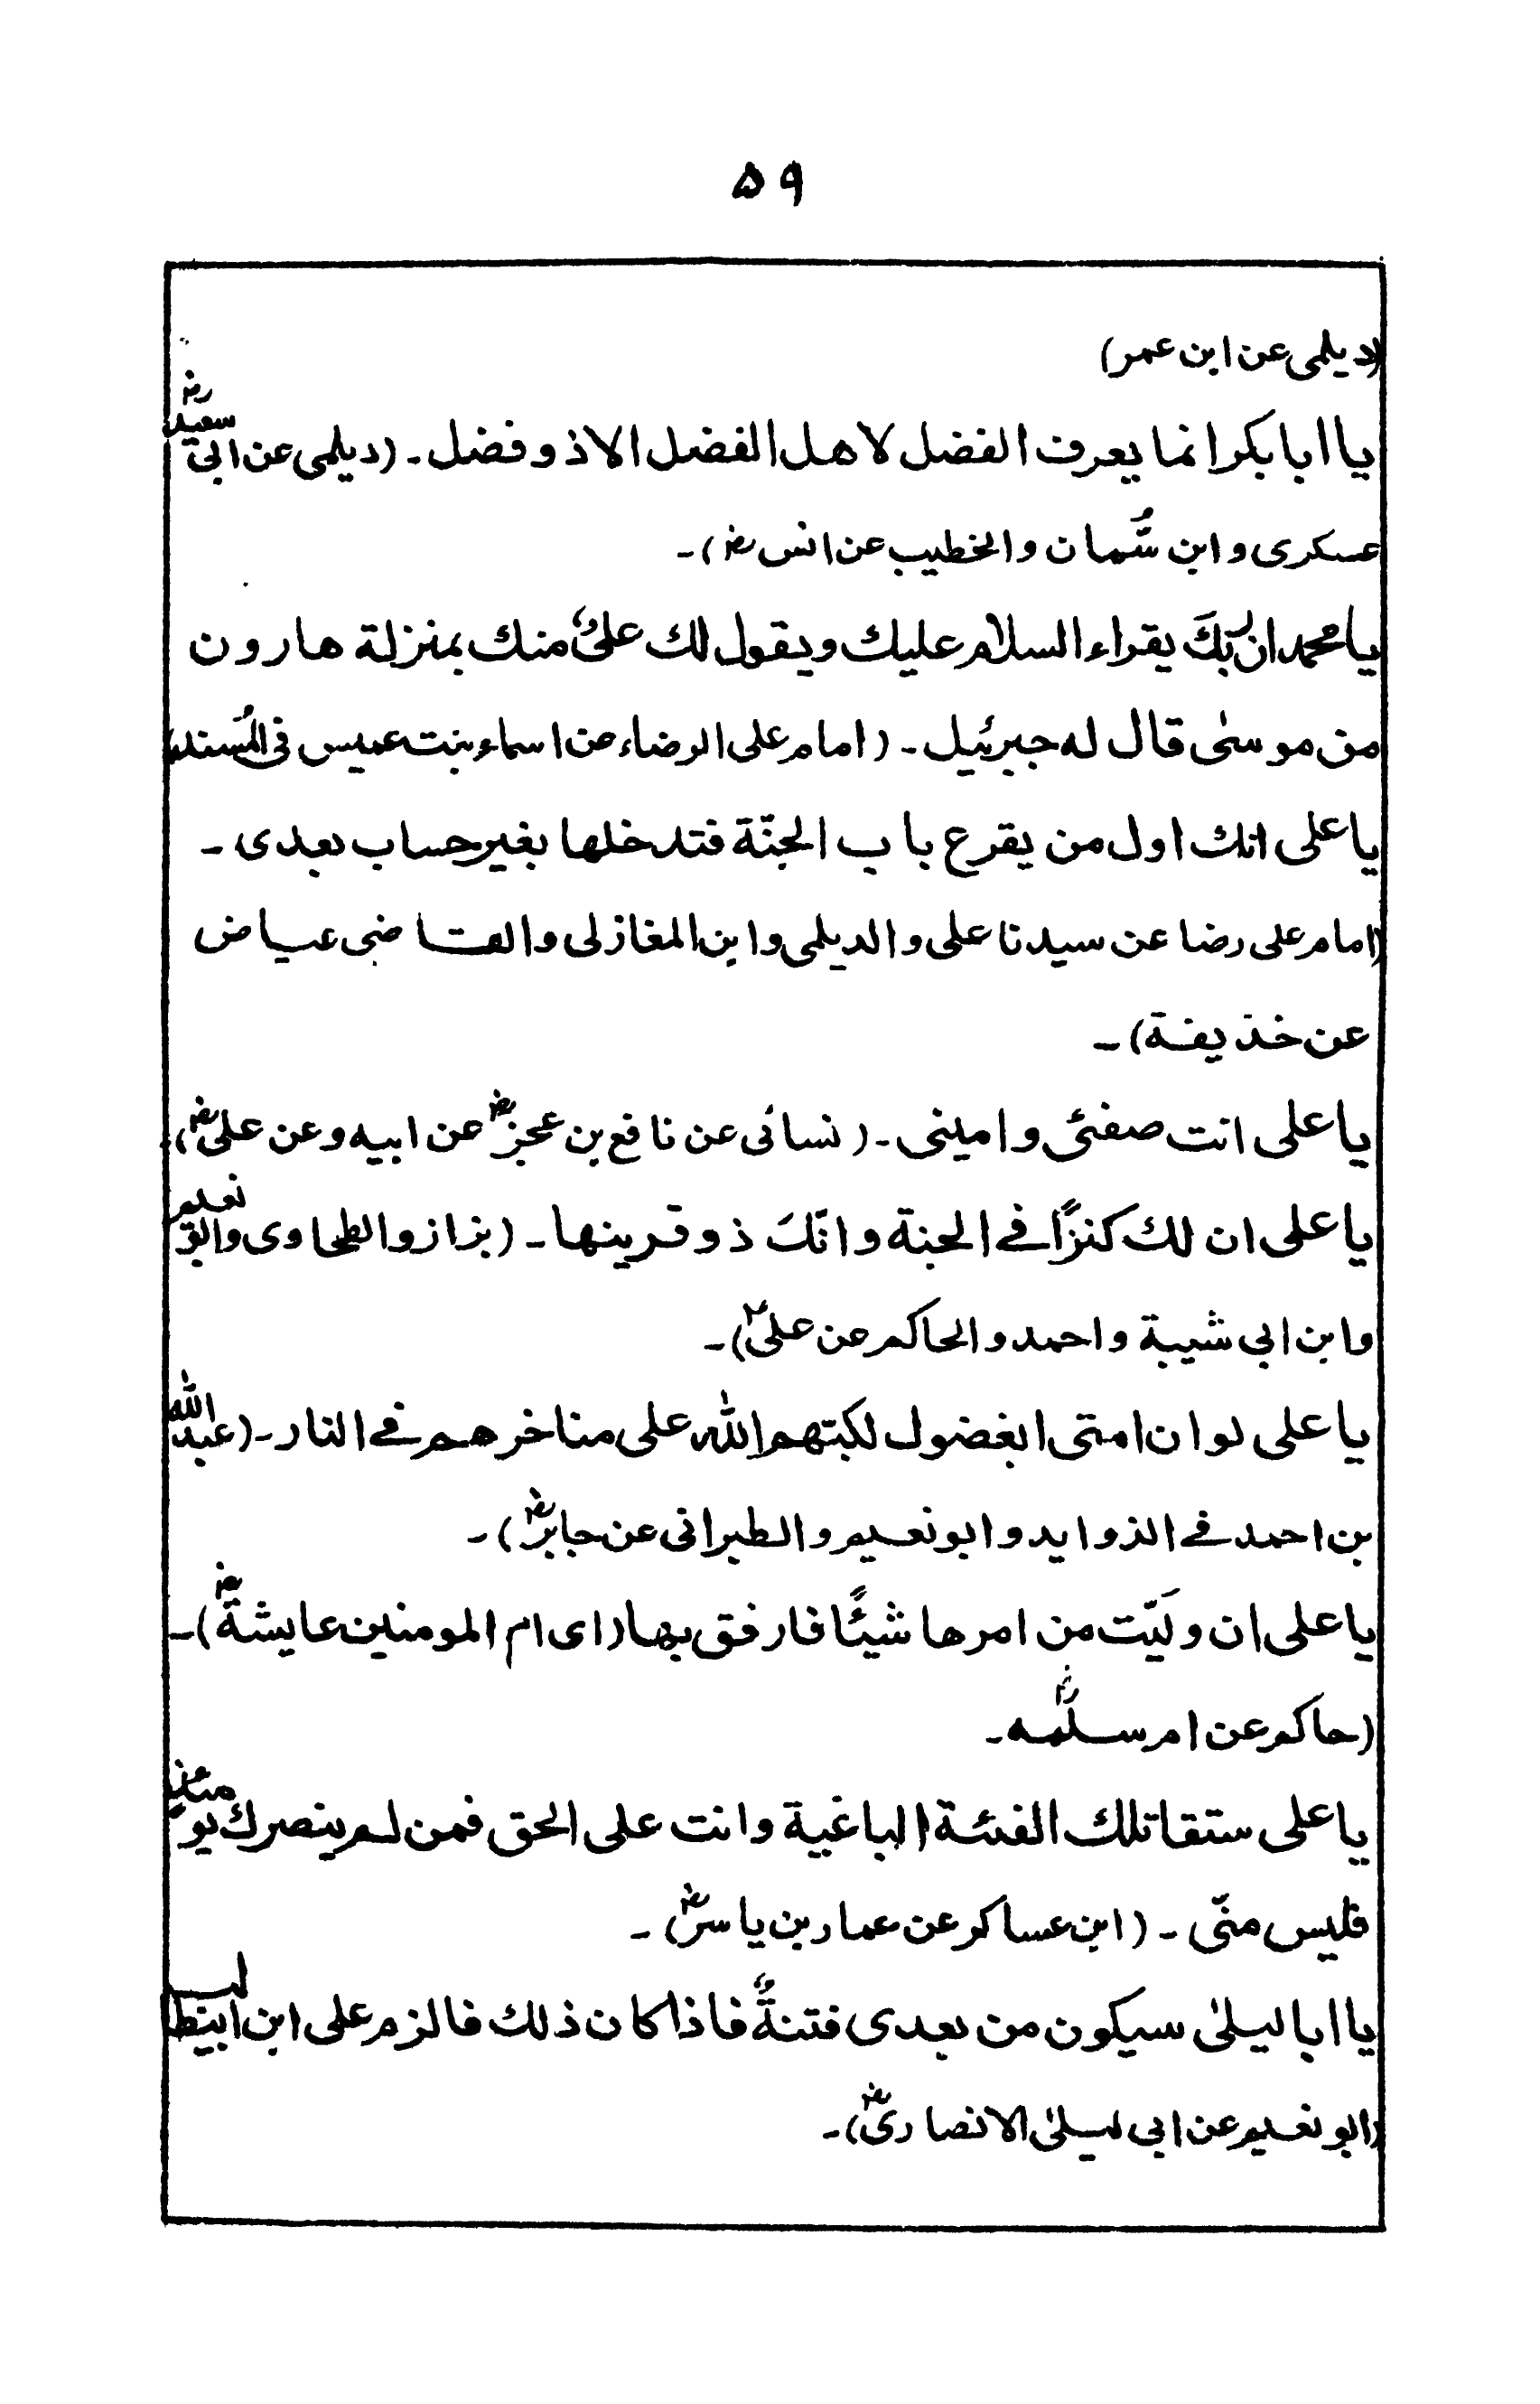 ۵۹
(دیلمی عن ابن عمر)
یا ابا بکر انما یعرف الفضل لاهل الفضل الا ذو فضل۔ (دیلمی عن ابی سعیدؓ
عسکری و ابن سُّمان والخطیب عن انسؓ)۔
یا محمد ان ربّکَ یقراء السلام علیك ویقول لك علیٌ منك بمنزلة هارون
من موسیٰ قال له جبرئیل۔ (امام علی الرضاء عن اسماء بنت عمیس فی المُسند)
یا علی انك اول من یقرع باب الجنّة فتدخلها بغیر حساب بعدی۔
(امام علی رضا عن سیدنا علی و الدیلمی وابن المغازلی والقاضی عیاض
عن خذیفة)۔
یا علی انت صفئی وامینی۔ (نسائی عن نافع بن عجزؓ عن ابیه وعن علیؓ)۔
یا علی ان لك کنزًا فے الجنة وانّكَ ذوقرینها۔ (بزاز والطحاوی والبو نعیم
وابن ابی شیبة واحمد والحاکم عن علیؓ)۔
یا علی لو ان امتی ابغضوك لکبتهم اللّٰه علی مناخرهم فے النار۔ (عبد اللّٰه
بن احمد فے الزواید وابو نعیم والطبرانی عن جابرؓ)۔
یا علی ان ولَیّت من امرها شیئًا فارفق بها (ای ام المومنین عایشةؓ)۔
(حاکم عن ام سلمهؓ۔
یا علی ستقاتلك الفئة الباغیة وانت علی الحق فمن لم ینصرك یومئذٍ
فلیس منّی۔ (ابن عساکر عن عمار بن یاسرؓ۔
یا ابا لیلیٰ سیکون من بعدی فتنةٌ فاذا کان ذلك فالزم علی ابن ابیطالب
(ابو نعیم عن ابی لیلیٰ الانصاریؓ)۔